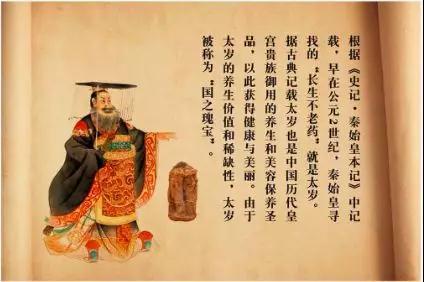 根据《史记·秦始皇本记》中记
载，早在公元2世纪，秦始皇寻
找的“长生不老药”就是太岁。
据古典记载太岁也是中国历代皇
宫贵族御用的养生和美容保养圣
品，以此获得健康与美丽。由于
太岁的养生价值和稀缺性，太岁
被称为“国之瑰宝”。